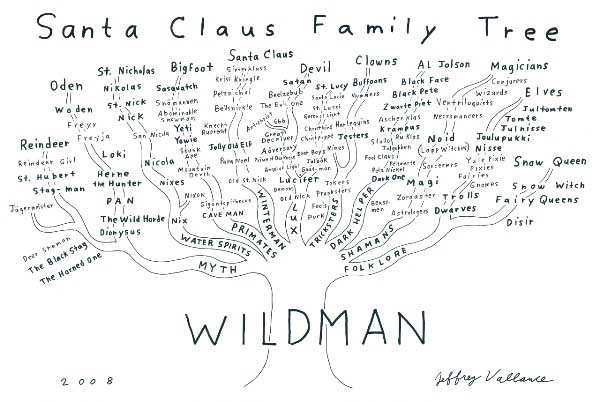 Santa Claus Family Tree
Santa Claus
St. Nicholas
Bigfoot
Devil
Clowns
Al Jolson
Magicians
Oden
Nikolas
Sasquatch
Kris Kringle
Satan
St. Lucy
Buffoons
Black Face
Conjurers
Elves
Woden
St. Nick
Snowmen
Pelznickel
Beelzebub
Santa Lucia
Mummers
Black Pete
Wizards
Freyr
Nick
Abominable
Snowman
Belsnickle
The Evil One
St. Lussi
Zwarte Piet
Ventriloquists
Jultomten
Freyja
San Nicola
Yeti
Knecht
Ruprecht
Antichrist
666
Harlequins
Aschenklas
Necromancers
Tomte
Reindeer
Yowie
Great
Deceiver
Christkind
Krampus
Julnisse
Reindeer Girl
Loki
Nicola
Skunk
Ape
Jolly Old Elf
Adversary
East Boys
Mimes
Jesters
Noid
Joulupukki
St. Hubert
Herne
the Hunter
Mountain
Devil
Papa Noel
Prince of Darkness
Fool Clauses
(Loop Witches)
Nisse
Stag-man
Nixes
Old St. Nick
Lucifer
Dark One
Sorcerers
Yule Pixie
Pixies
Snow Queen
Jägermeister
PAN
Nixon
Gigantopithecus
Demons
Jokers
Magi
Fairies
Gnomes
Snow Witch
The Wild Horde
Nix
CAVE MAN
Old Nick
Pranksters
Zoroaster
Trolls
Fairy Queens
Dionysus
Fools
Puck
Astrologers
Dwarves
Disir
Deer Shaman
The Black Stag
The Horned One
MYTH
WATER SPIRITS
PRIMATES
WINTERMAN
TRICKSTERS
DARK HELPER
SHAMANS
FOLKLORE
WILDMAN
2008
Jeffrey Vallance